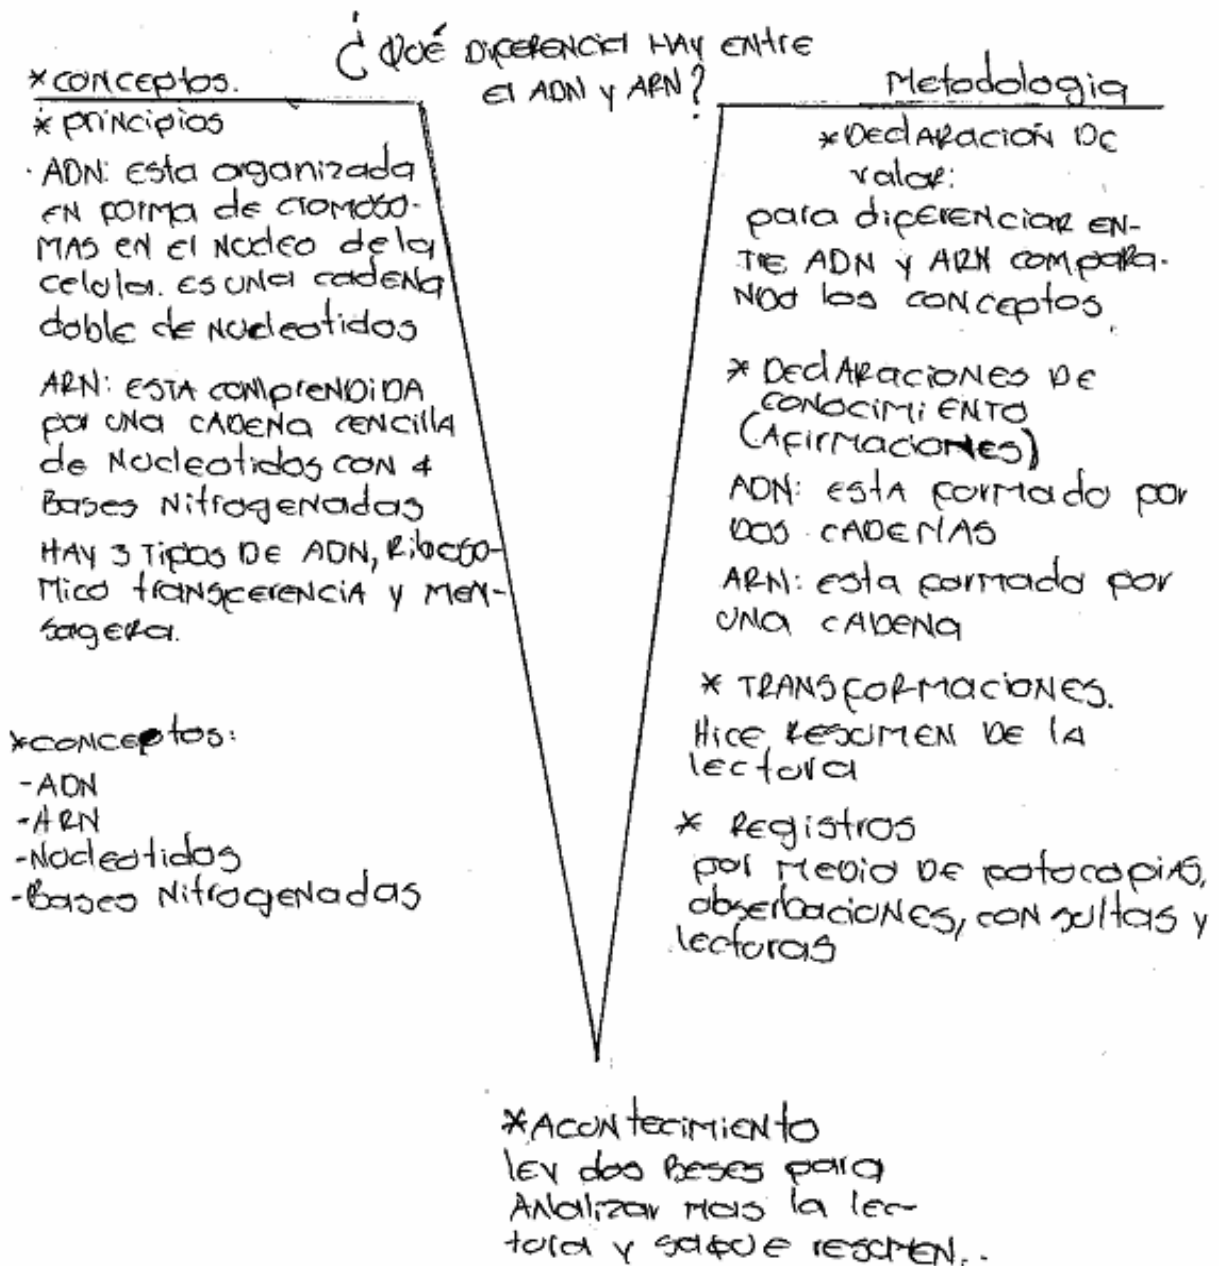 ¿Qué diferencia hay entre
el ADN y ARN?
*conceptos.
* principios
· ADN: esta organizada
en forma de cromoso-
mas en el nucleo de la
celula. es una cadena
doble de nucleotidos
ARN: esta comprendida
por una cadena cencilla
de nucleotidos con 4
Bases Nitrogenadas
Hay 3 tipos de ADN, Riboso-
mico transferencia y men-
sagera.
*conceptos:
-ADN
-ARN
-Nucleotidos
-Bases Nitrogenadas
Metodologia
*Declaración de
valor:
para diferenciar en-
tre ADN y ARN compara-
ndo los conceptos
* Declaraciones de
conocimiento
(Afirmaciones)
ADN: esta formado por
dos cadenas
ARN: esta formado por
una cadena
* Transformaciones.
Hice resumen de la
lectura
* Registros
por medio de fotocopias,
obserbaciones, consultas y
lecturas
*Acontecimiento
ley dos beses para
Analizar mas la lec-
tura y saque resumen..